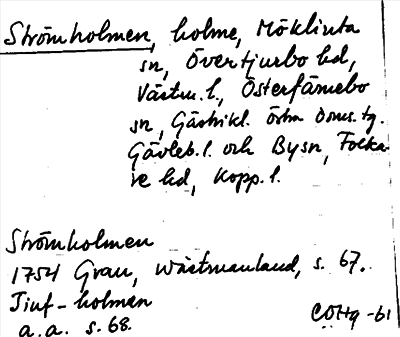 Strömholmen, holme, Möklinta
sn, Övertjurbo hd,
Västm. l., Österfärnebo
sn, Gästrikl. östra doms.tg.
Gävleb. l. och Bysn, Folka-
re hd, Kopp. l.
Strömholmen
1754 Grau, Wästmanland, s. 67.
Tiuf-holman
a.a. s. 68.
-61